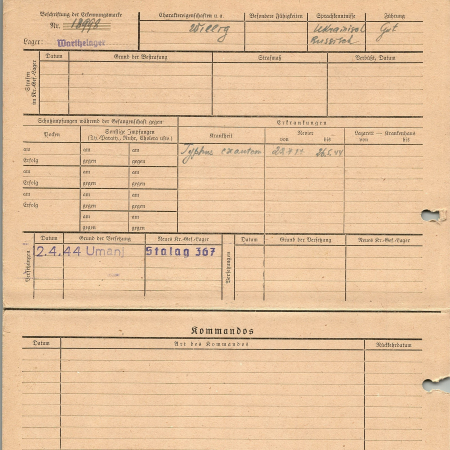 Beschriftung der Erkennungsmarke
Nr. 18998
Lager: Warthelager
Charaktereigenschaften u. a.
Willig
Besondere Fähigkeiten
Sprachkenntnisse
Ukrainisch
Russisch
Führung
Gut
Strafen im Kr.-Gef.-Lager
Datum Grund der Bestrafung Strafmaß Verbüßt, Datum
Schutzimpfungen während der Gefangenschaft gegen
Erkrankungen
Pocken
Sonstige Impfungen
(Ty.-Paraty., Ruhr, Cholera usw.)
Krankheit
Revier
von bis
Lazarett — Krankenhaus
von bis
am am am
Erfolg gegen gegen
am am am
Erfolg gegen gegen
am am am
Erfolg gegen gegen
am am
gegen gegen
Typhus exantem
26.6.44
Versetzungen
Datum Grund der Versetzung Neues Kr.-Gef.-Lager
2.4.44 Umanj Stalag 367
Versetzungen
Datum Grund der Versetzung Neues Kr.-Gef.-Lager
Kommandos
Datum Art des Kommandos Rückkehrdatum